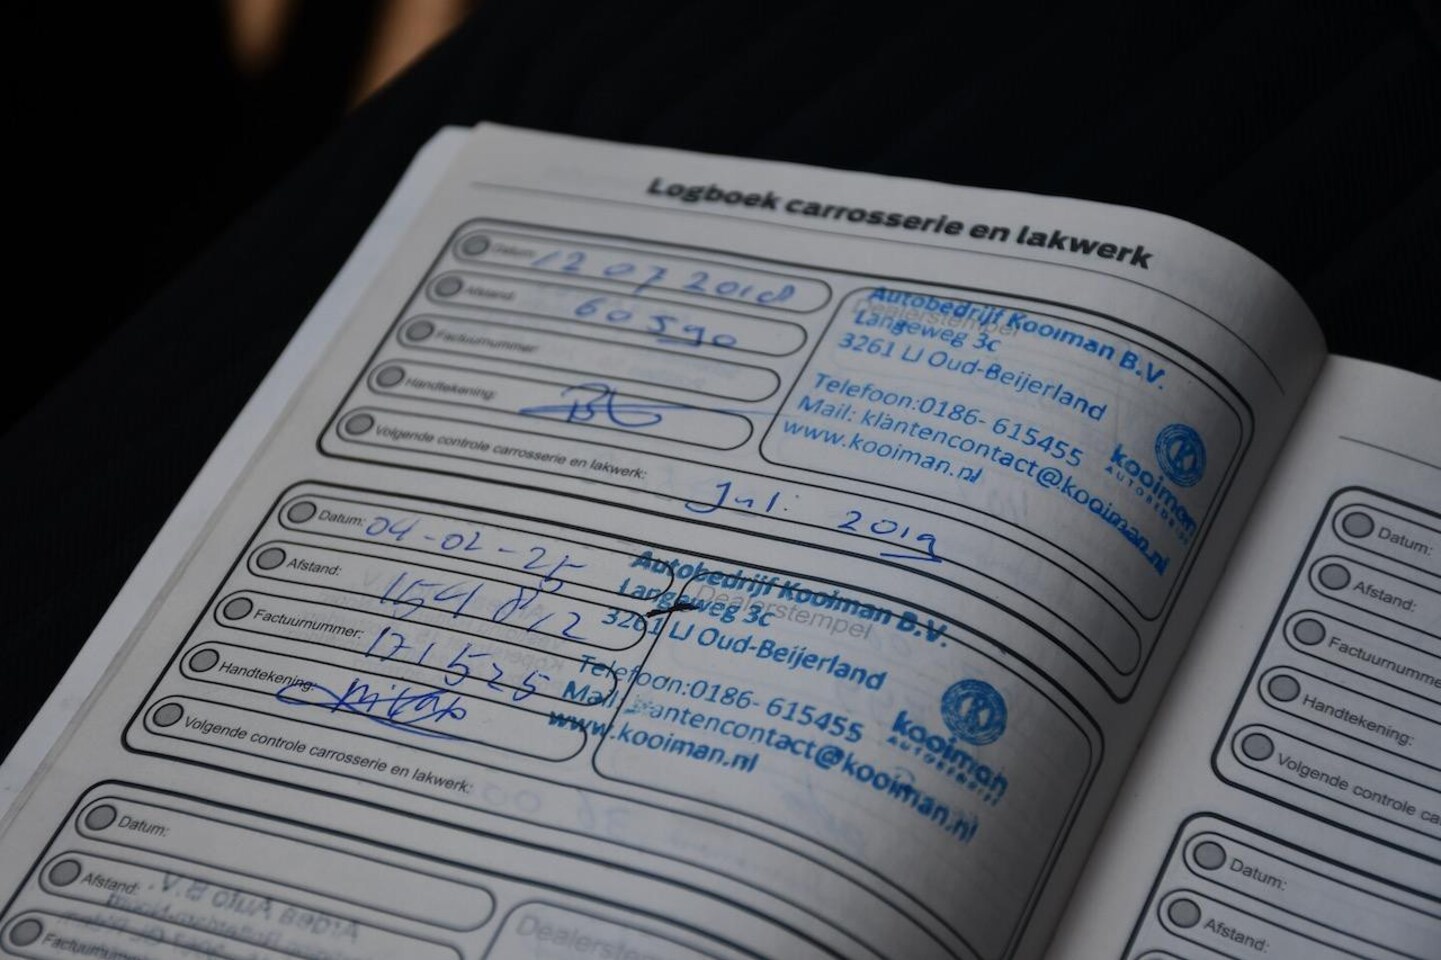 Logboek carrosserie en lakwerk
Datum: 12 07 2018
Afstand: 60590
Factuurnummer:
Handtekening:
Volgende controle carrosserie en lakwerk: Juli 2019
Dealerstempel
Autobedrijf Kooiman B.V.
Langeweg 3c
3261 LJ Oud-Beijerland
Telefoon:0186- 615455
Mail: klantencontact@kooiman.nl
www.kooiman.nl
kooiman
AUTOBEDRIJF
Datum: 04-02-25
Afstand: 154812
Factuurnummer: 171525
Handtekening:
Volgende controle carrosserie en lakwerk:
Dealerstempel
Autobedrijf Kooiman B.V.
Langeweg 3c
3261 LJ Oud-Beijerland
Telefoon:0186- 615455
Mail: klantencontact@kooiman.nl
www.kooiman.nl
kooiman
AUTOBEDRIJF
Datum:
Afstand:
Factuurnummer:
Dealerstempel
Datum:
Afstand:
Factuurnumme
Handtekening:
Volgende controle ca
Datum:
Afstand: